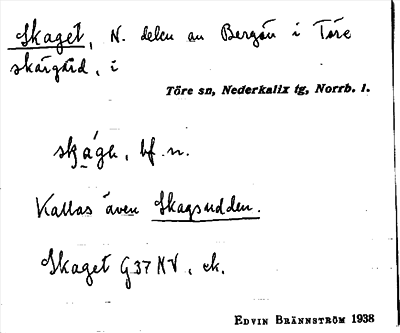 Skaget, N. delen av Bergön i Töre
skärgård, i
Töre sn, Nederkalix tg, Norrb. l.
bf. n.
Kallas även Skagsudden.
Skaget G37 NV, ek.
EDVIN BRÄNNSTRÖM 1938